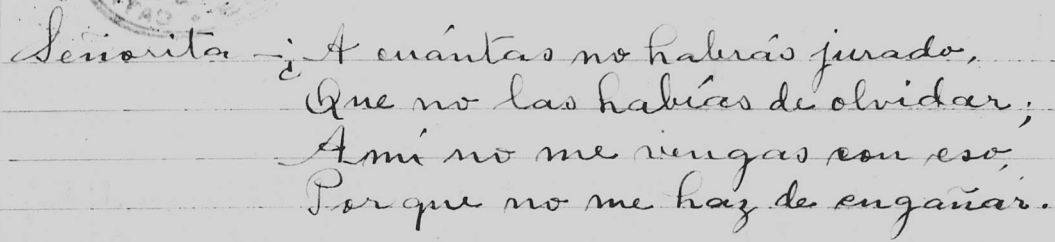 Señorita -¿A cuántas no habrás jurado,
Que no las habías de olvidar;
A mí no me vengas con eso,
Porque no me haz de engañar.